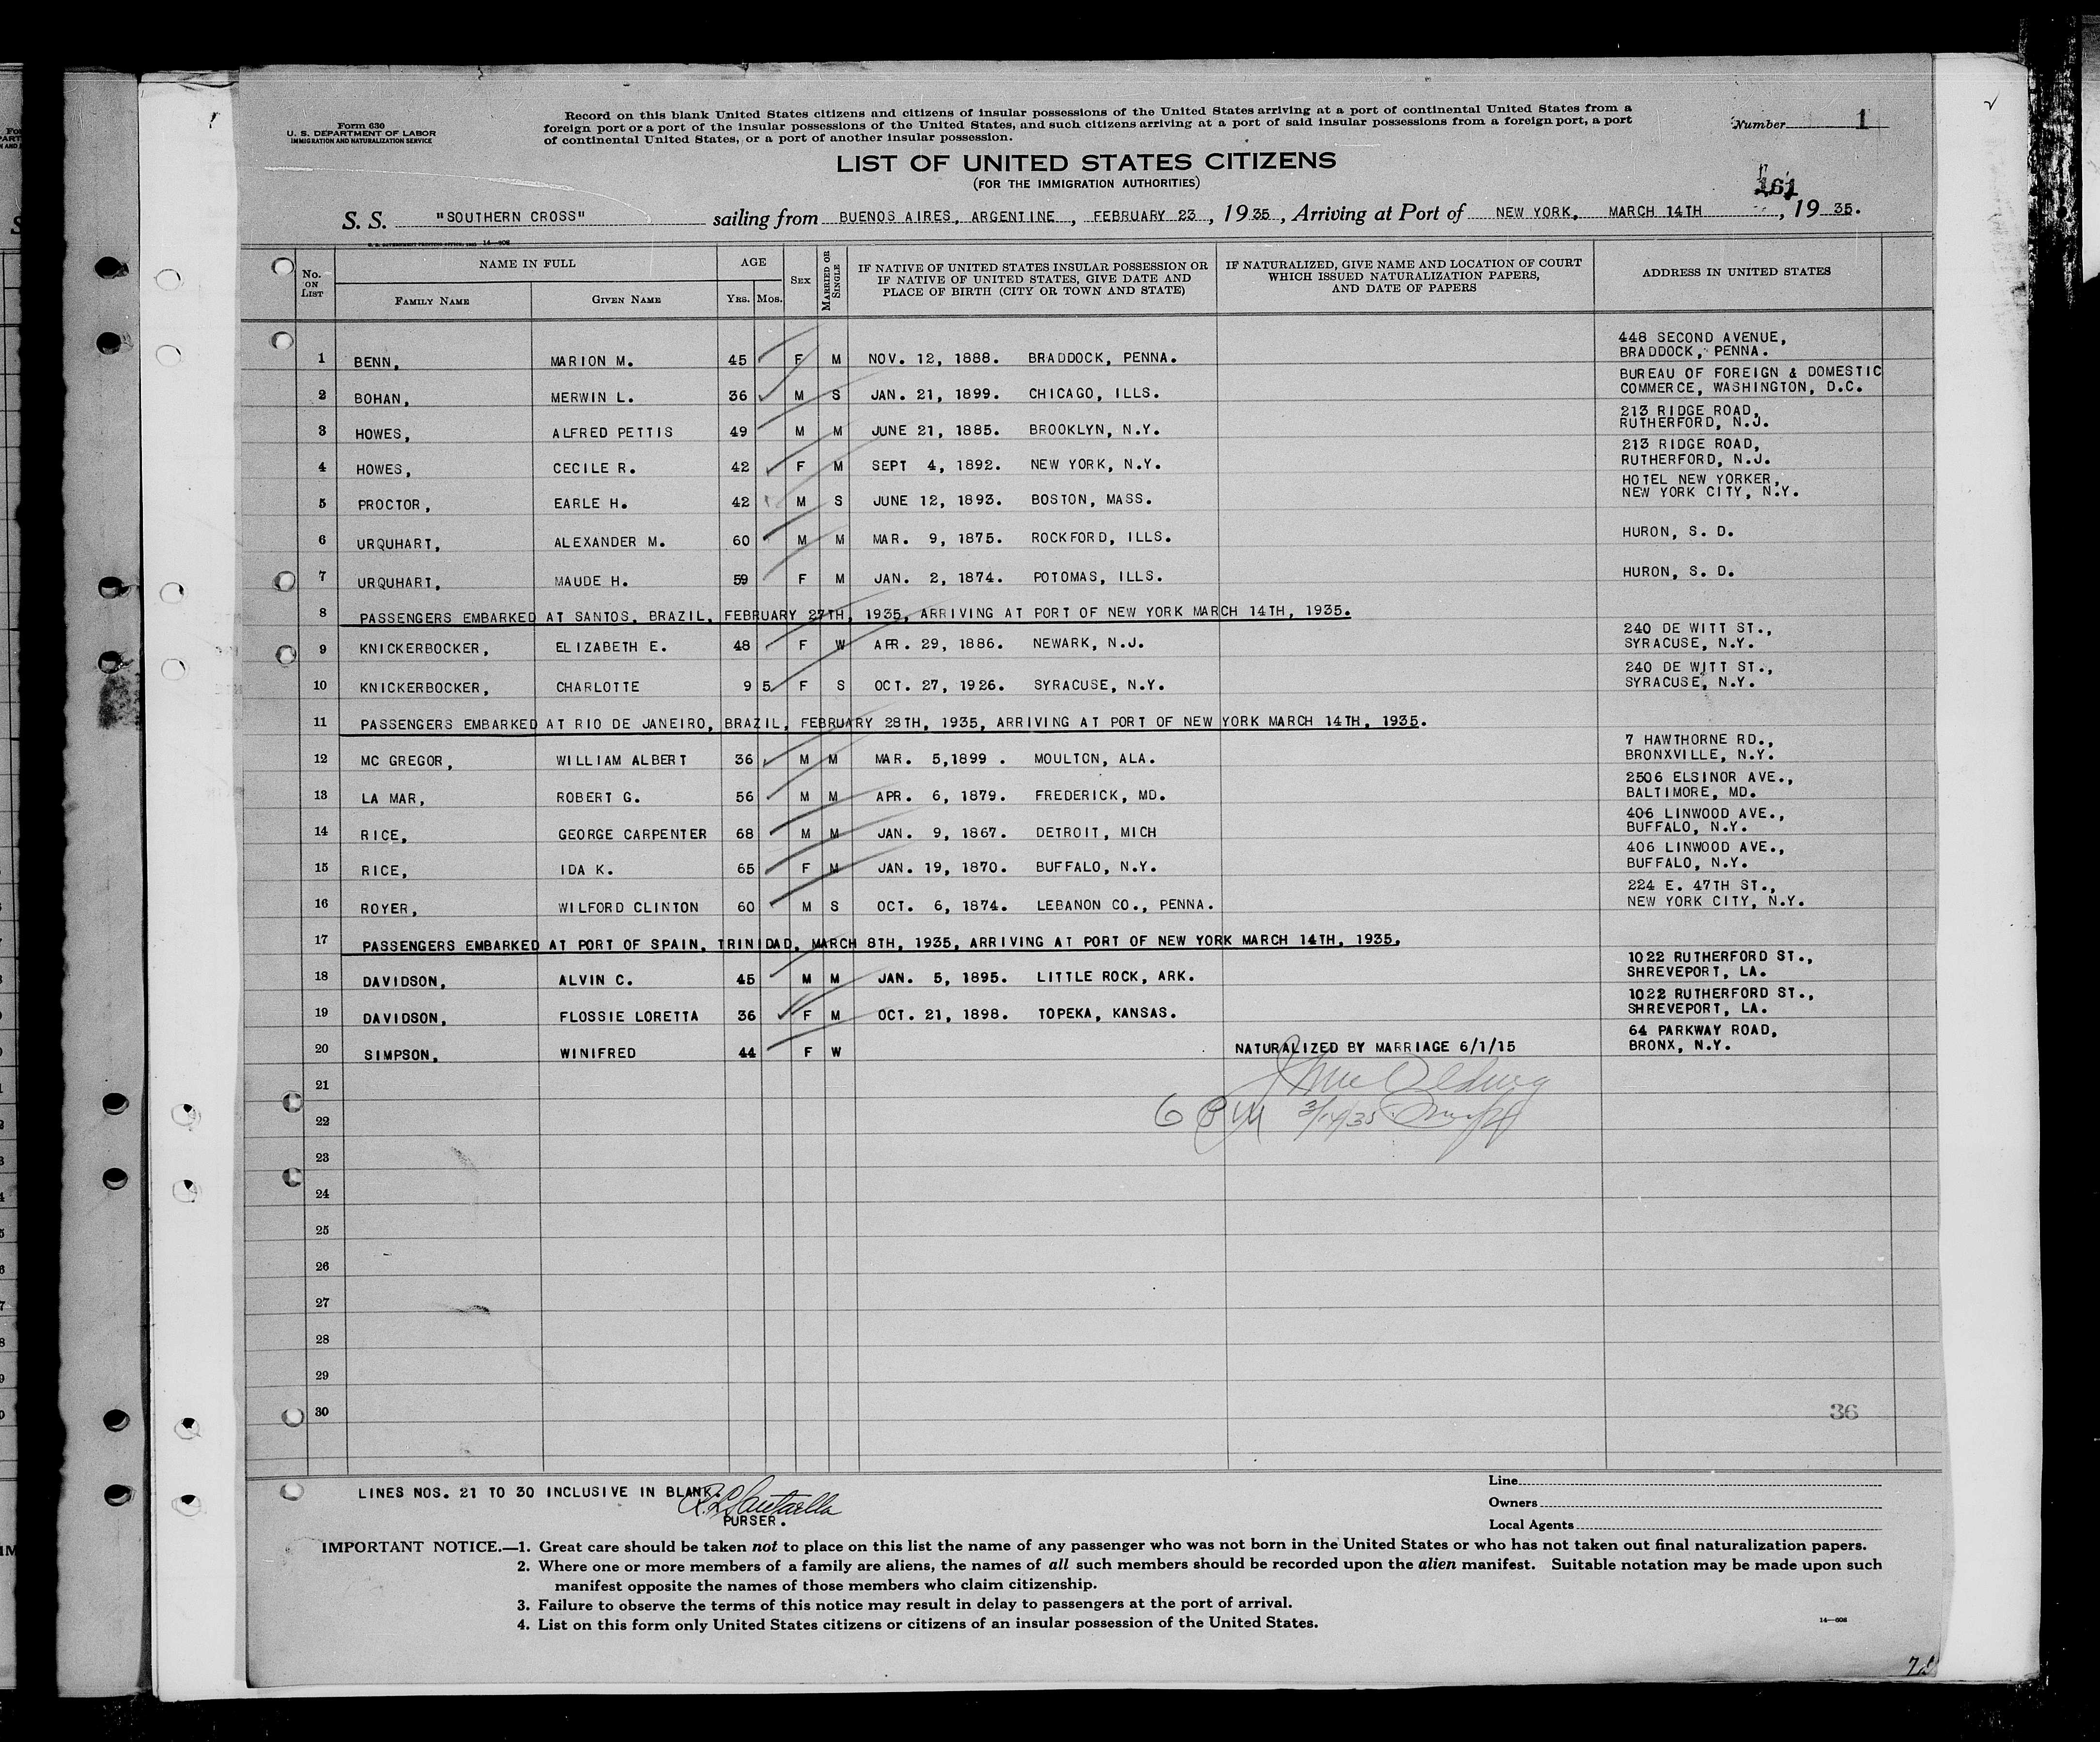 Form 630
U. S. DEPARTMENT OF LABOR
IMMIGRATION AND NATURALIZATION SERVICE
Record on this blank United States citizens and citizens of insular possessions of the United States arriving at a port of continental United States from a
foreign port or a port of the insular possessions of the United States, and such citizens arriving at a port of said insular possessions from a foreign port, a port
of continental United States, or a port of another insular possession.
Number 1
LIST OF UNITED STATES CITIZENS
(FOR THE IMMIGRATION AUTHORITIES)
161
S. S. "SOUTHERN CROSS" sailing from BUENOS AIRES, ARGENTINE, FEBRUARY 23, 1935, Arriving at Port of NEW YORK, MARCH 14TH, 1935.
No. ON LIST NAME IN FULL FAMILY NAME GIVEN NAME AGE YRS. MOS. SEX MARRIED OR SINGLE IF NATIVE OF UNITED STATES INSULAR POSSESSION OR IF NATIVE OF UNITED STATES, GIVE DATE AND PLACE OF BIRTH (CITY OR TOWN AND STATE) IF NATURALIZED, GIVE NAME AND LOCATION OF COURT WHICH ISSUED NATURALIZATION PAPERS, AND DATE OF PAPERS ADDRESS IN UNITED STATES
1 BENN, MARION M. 45 F M NOV. 12, 1888. BRADDOCK, PENNA. 448 SECOND AVENUE, BRADDOCK, PENNA.
2 BOHAN, MERWIN L. 36 M S JAN. 21, 1899. CHICAGO, ILLS. BUREAU OF FOREIGN & DOMESTIC COMMERCE, WASHINGTON, D.C.
3 HOWES, ALFRED PETTIS 49 M M JUNE 21, 1885. BROOKLYN, N.Y. 213 RIDGE ROAD, RUTHERFORD, N.J.
4 HOWES, CECILE R. 42 F M SEPT 4, 1892. NEW YORK, N.Y. 213 RIDGE ROAD, RUTHERFORD, N.J.
5 PROCTOR, EARLE H. 42 M S JUNE 12, 1893. BOSTON, MASS. HOTEL NEW YORKER, NEW YORK CITY, N.Y.
6 URQUHART, ALEXANDER M. 60 M M MAR. 9, 1875. ROCKFORD, ILLS. HURON, S. D.
7 URQUHART, MAUDE H. 59 F M JAN. 2, 1874. POTOMAS, ILLS. HURON, S. D.
8 PASSENGERS EMBARKED AT SANTOS, BRAZIL, FEBRUARY 27TH, 1935, ARRIVING AT PORT OF NEW YORK MARCH 14TH, 1935.
9 KNICKERBOCKER, ELIZABETH E. 48 F W APR. 29, 1886. NEWARK, N.J. 240 DE WITT ST., SYRACUSE, N.Y.
10 KNICKERBOCKER, CHARLOTTE 9 5 F S OCT. 27, 1926. SYRACUSE, N.Y. 240 DE WITT ST., SYRACUSE, N.Y.
11 PASSENGERS EMBARKED AT RIO DE JANEIRO, BRAZIL, FEBRUARY 28TH, 1935, ARRIVING AT PORT OF NEW YORK MARCH 14TH, 1935.
12 MC GREGOR, WILLIAM ALBERT 36 M M MAR. 5,1899 . MOULTON, ALA. 7 HAWTHORNE RD., BRONXVILLE, N.Y.
13 LA MAR, ROBERT G. 56 M M APR. 6, 1879. FREDERICK, MD. 2506 ELSINOR AVE., BALTIMORE, MD.
14 RICE, GEORGE CARPENTER 68 M M JAN. 9, 1867. DETROIT, MICH 406 LINWOOD AVE., BUFFALO, N.Y.
15 RICE, IDA K. 65 F M JAN. 19, 1870. BUFFALO, N.Y. 406 LINWOOD AVE., BUFFALO, N.Y.
16 ROYER, WILFORD CLINTON 60 M S OCT. 6, 1874. LEBANON CO., PENNA. 224 E. 47TH ST., NEW YORK CITY, N.Y.
17 PASSENGERS EMBARKED AT PORT OF SPAIN, TRINIDAD, MARCH 8TH, 1935, ARRIVING AT PORT OF NEW YORK MARCH 14TH, 1935.
18 DAVIDSON, ALVIN C. 45 M M JAN. 5, 1895. LITTLE ROCK, ARK. 1022 RUTHERFORD ST., SHREVEPORT, LA.
19 DAVIDSON, FLOSSIE LORETTA 36 F M OCT. 21, 1898. TOPEKA, KANSAS. 1022 RUTHERFORD ST., SHREVEPORT, LA.
20 SIMPSON, WINIFRED 44 F W NATURALIZED BY MARRIAGE 6/1/15 64 PARKWAY ROAD, BRONX, N.Y.
21
22 6 PM 3/14/35
23
24
25
26
27
28
29
30
36
LINES NOS. 21 TO 30 INCLUSIVE IN BLANK.
PURSER.
Line
Owners
Local Agents
IMPORTANT NOTICE.—1. Great care should be taken not to place on this list the name of any passenger who was not born in the United States or who has not taken out final naturalization papers.
2. Where one or more members of a family are aliens, the names of all such members should be recorded upon the alien manifest. Suitable notation may be made upon such
manifest opposite the names of those members who claim citizenship.
3. Failure to observe the terms of this notice may result in delay to passengers at the port of arrival.
4. List on this form only United States citizens or citizens of an insular possession of the United States.
14—608